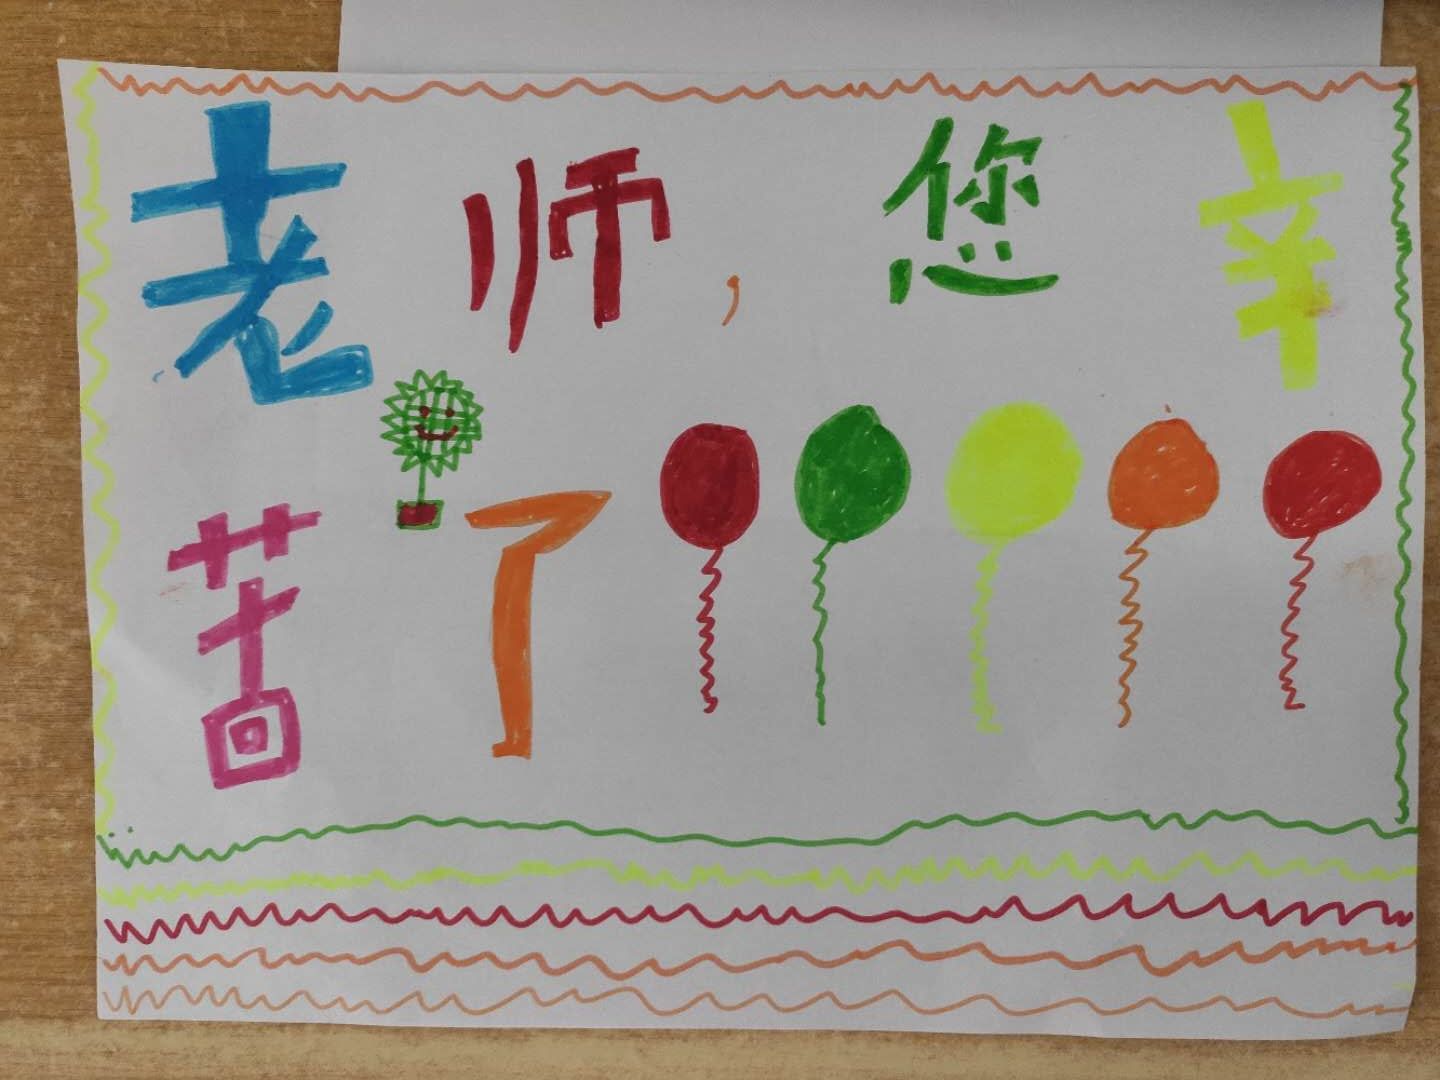 老师，您辛
苦了